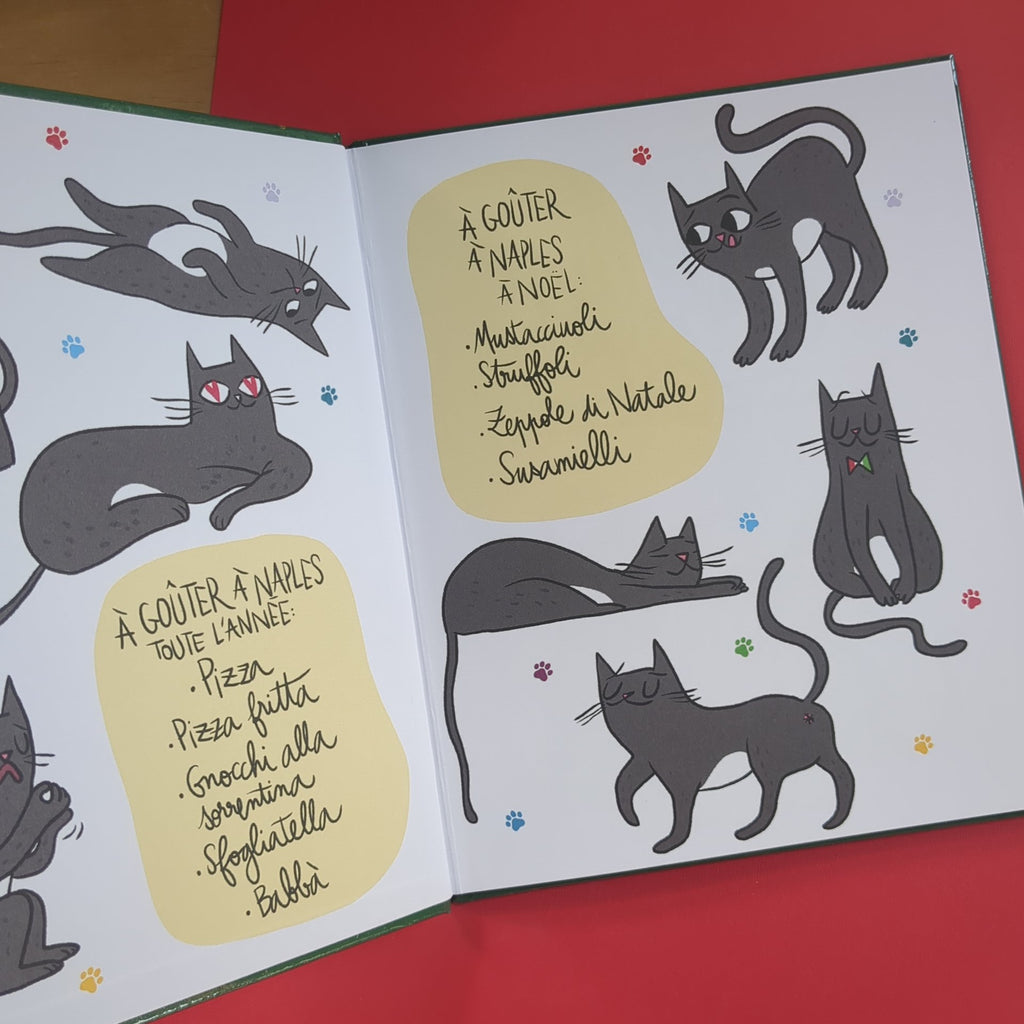 À GOÛTER À NAPLES
TOUTE L'ANNÉE:
• Pizza
• Pizza fritta
• Gnocchi alla
sorrentina
• Sfogliatella
• Babbà
À GOÛTER
À NAPLES
À NOËL:
• Mustacciuoli
• Struffoli
• Zeppole di Natale
• Susamielli